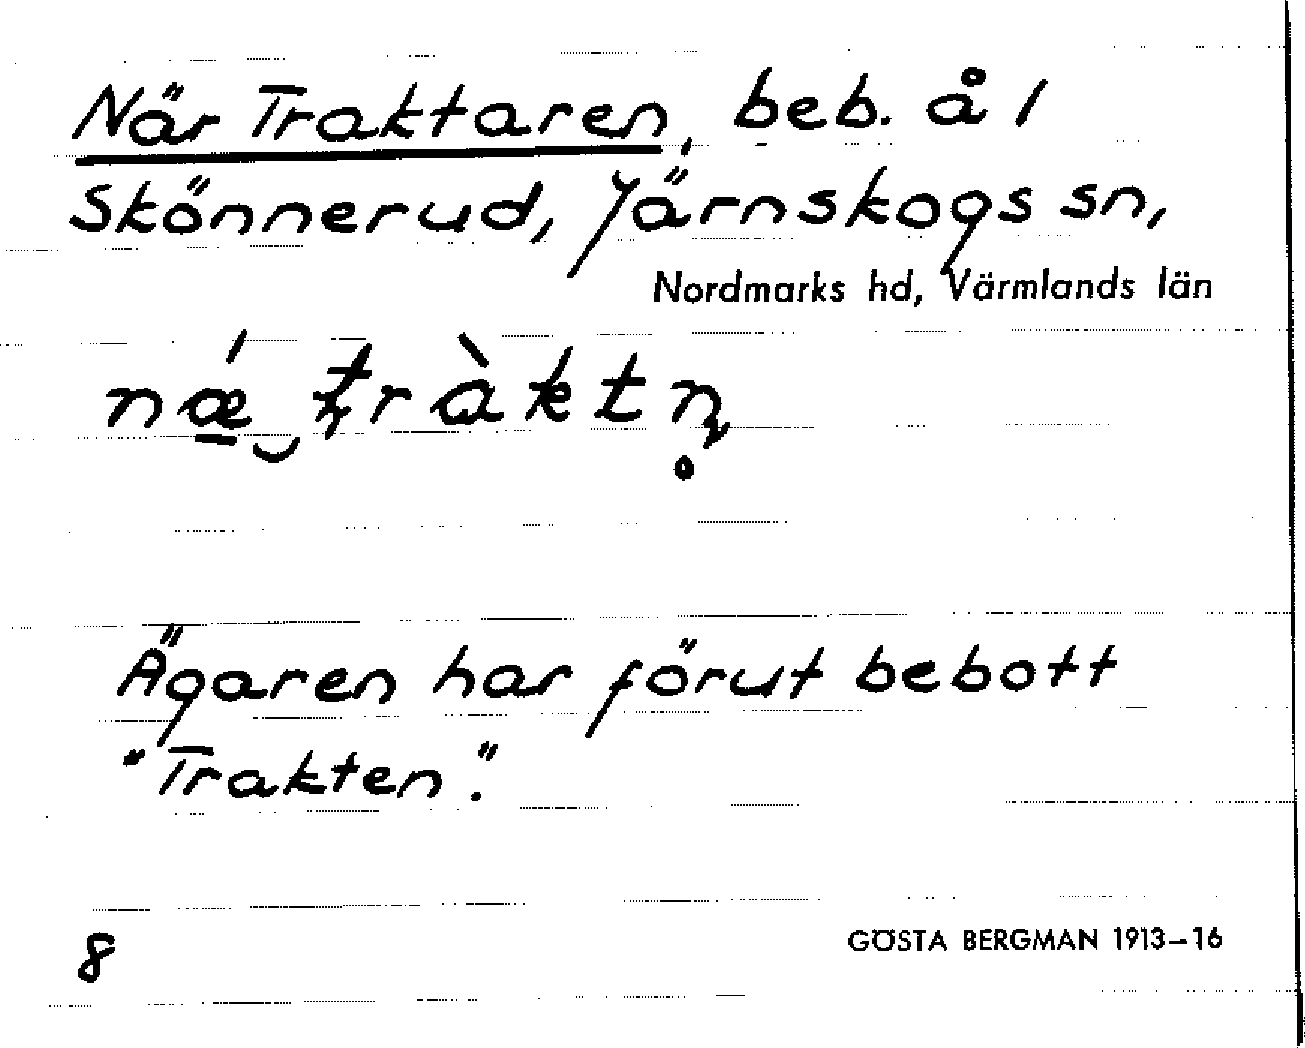 När Traktaren, beb. å 1
Skönnerud, Järnskogs sn,
Nordmarks hd, Värmlands län
Ägaren har förut bebott
"Trakten".
8
GÖSTA BERGMAN 1913–16